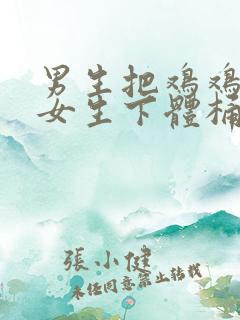 男生把鸡鸡
女生下體桶
張小健
未经同意禁止转载